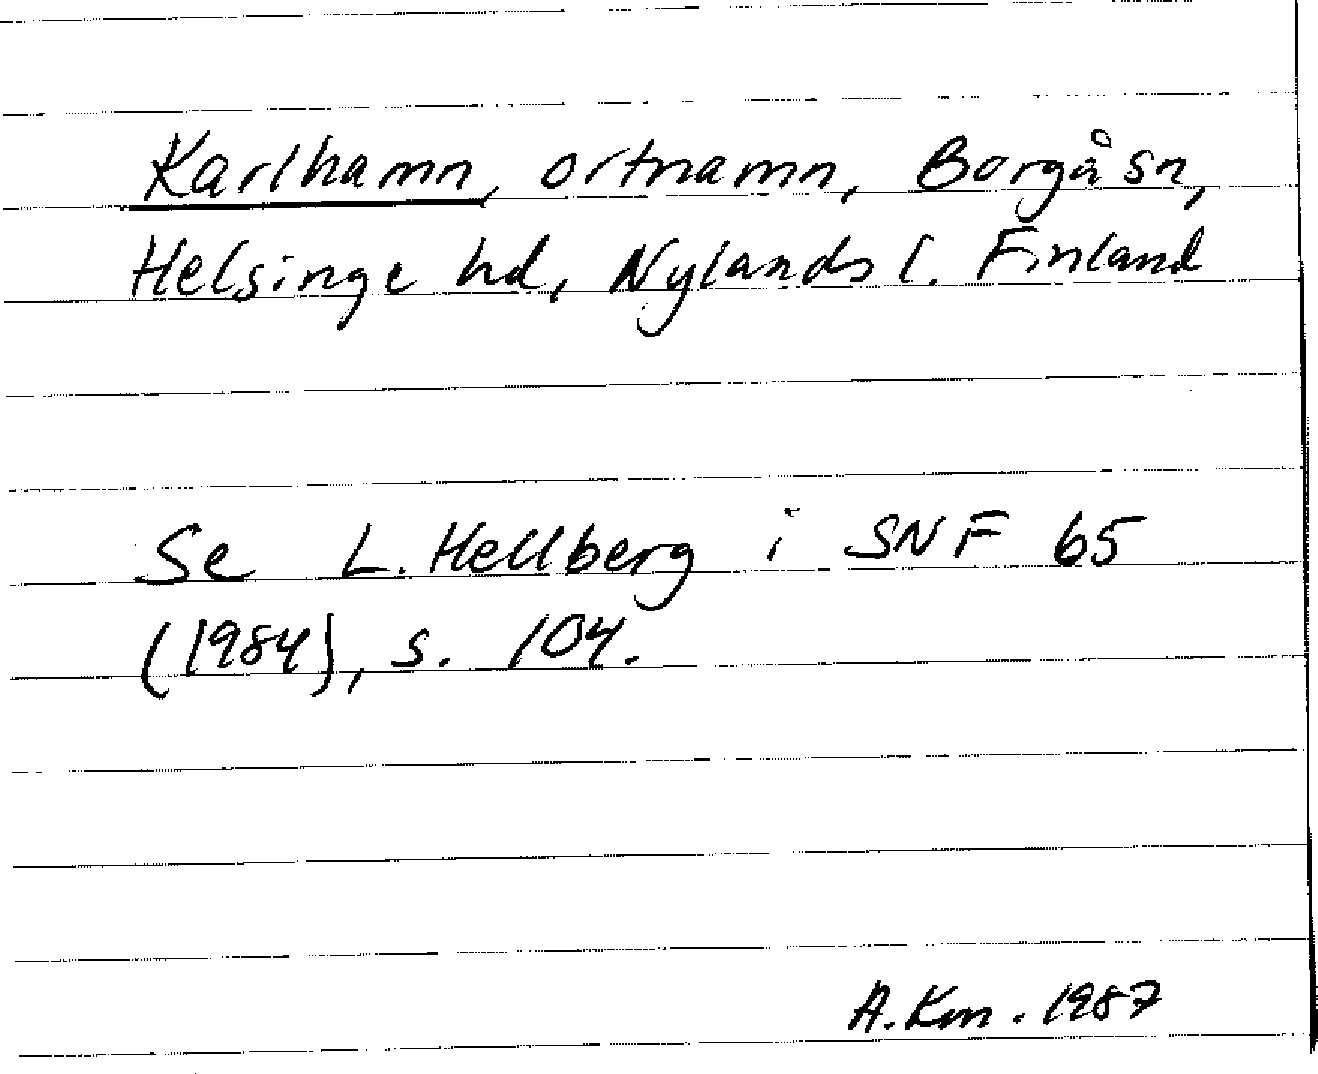 Karlhamn, ortnamn, Borgå sn,
Helsinge hd, Nylands l. Finland
Se L. Hellberg i SNF 65
(1984), s. 104.
A. Km. 1987